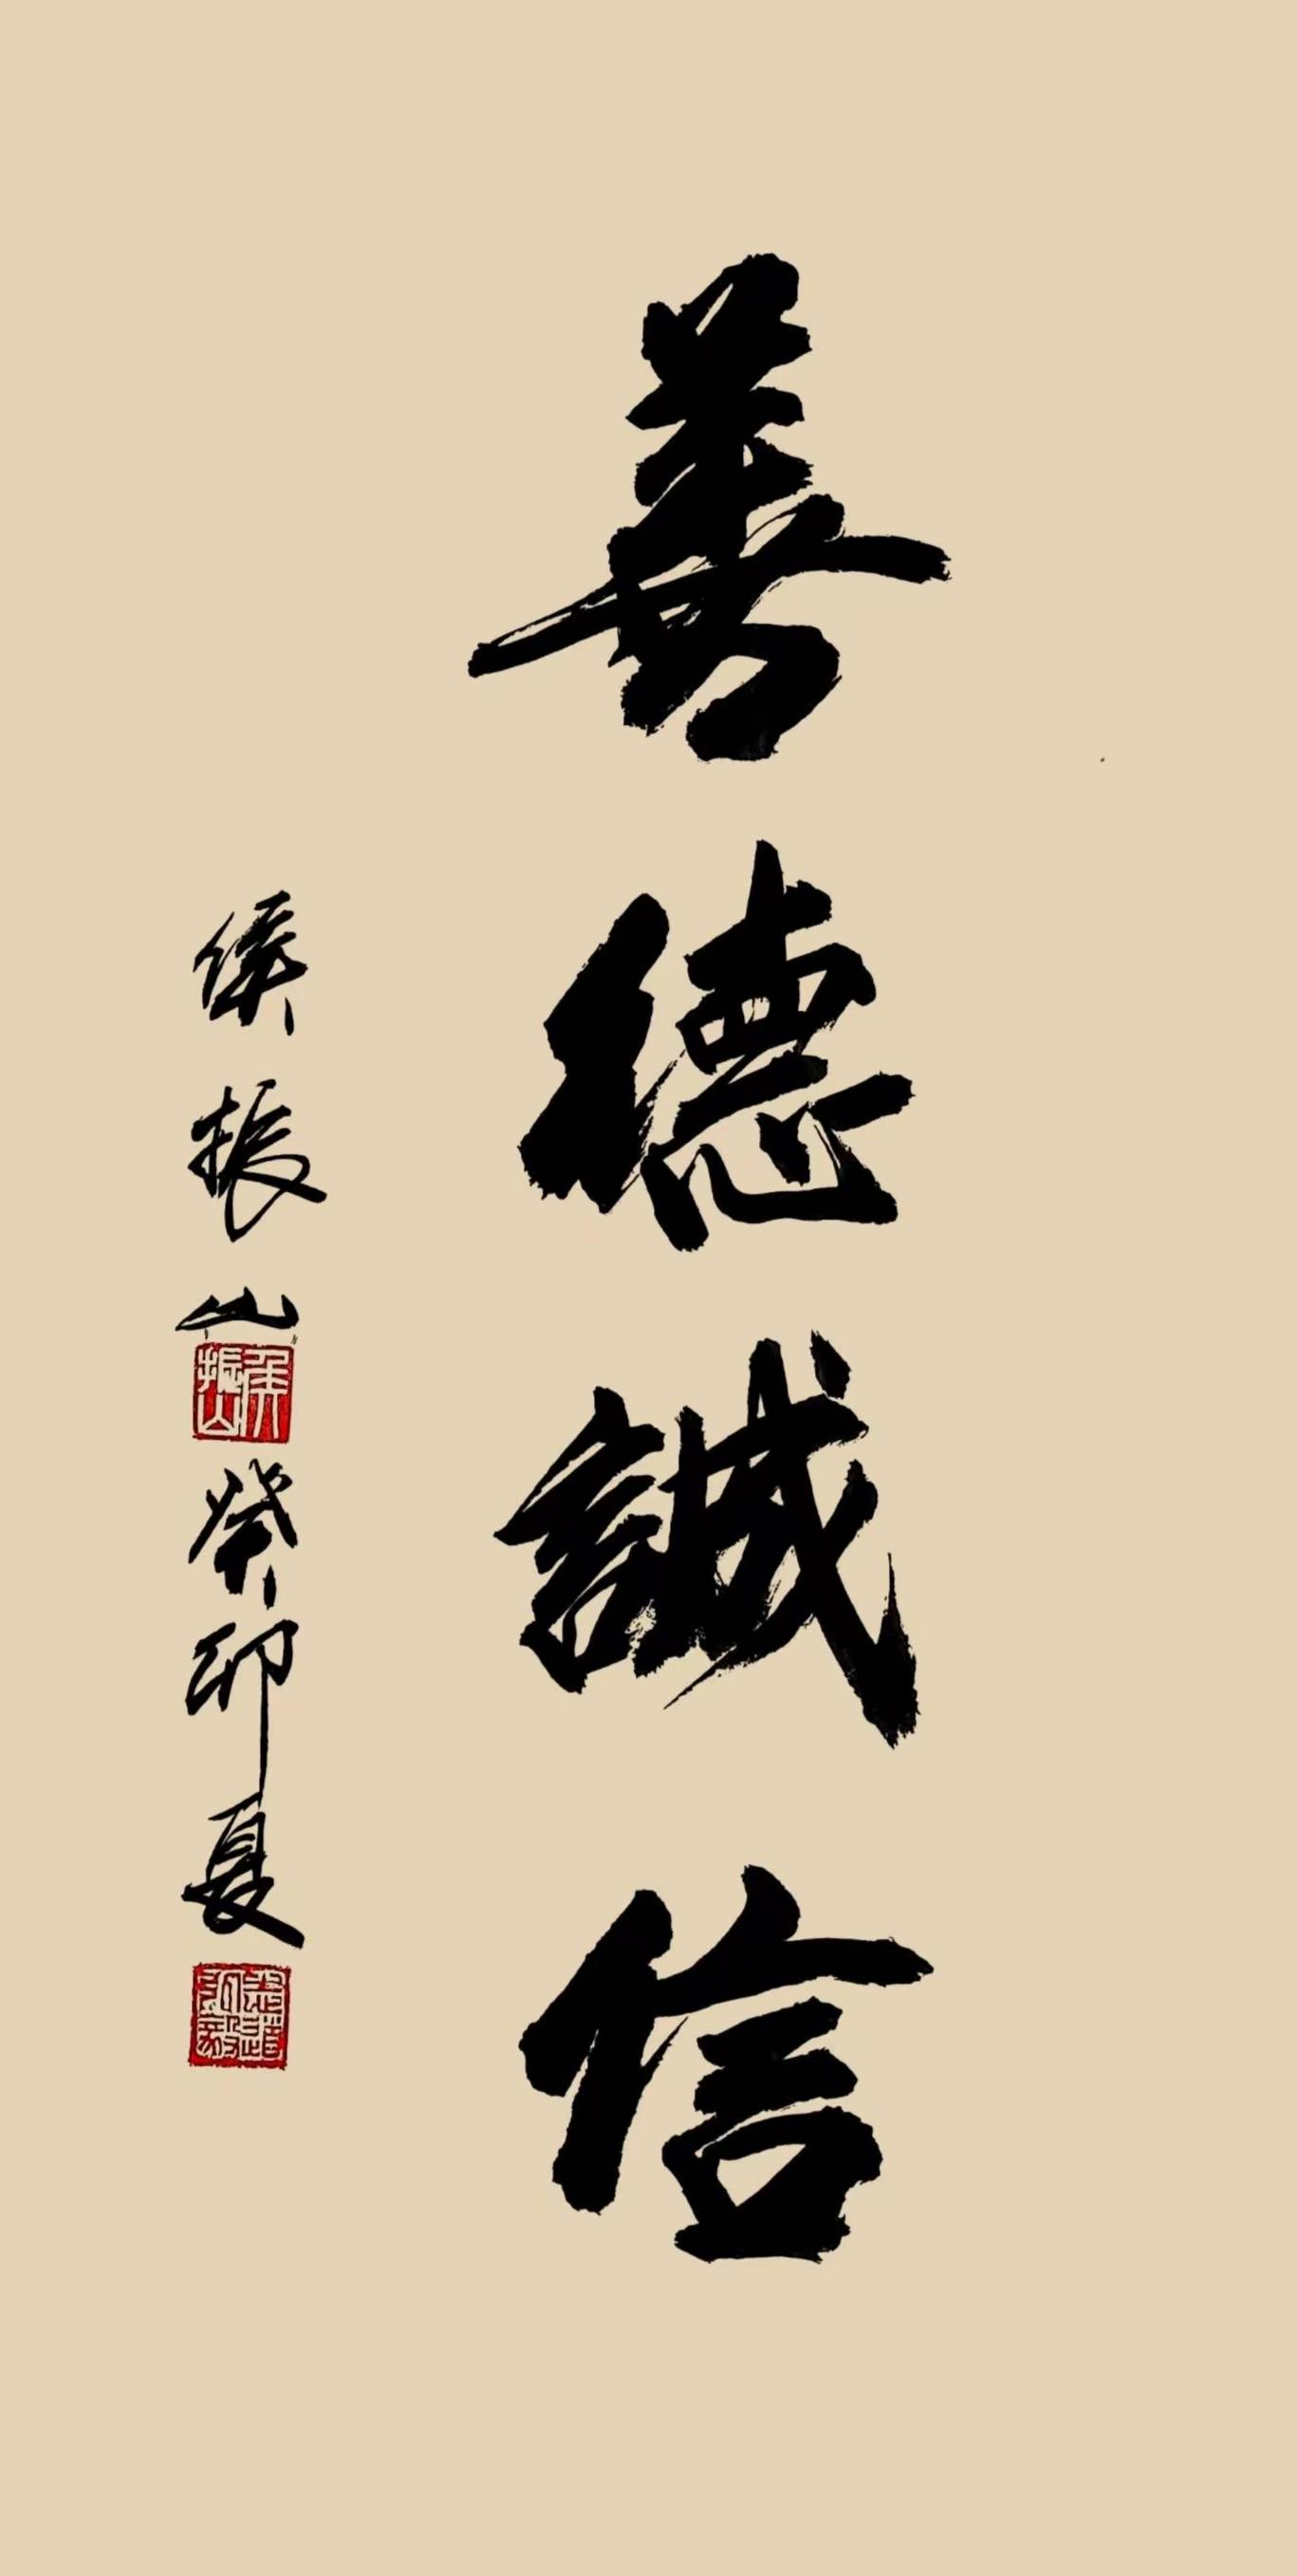 善德誠信
侯振山
侯振山
癸卯夏